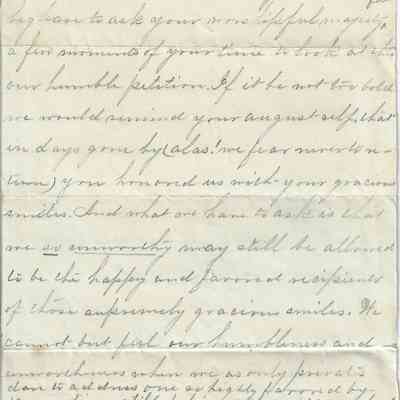 beg leave to ask your worshipful majesty,
a few moments of your time to look at this
our humble petition. If it be not too bold
we would remind your august self, that
in days gone by (alas! we fear never to re-
turn) you honored us with your gracious
smiles. And what we have to ask is that
we so unworthy may still be allowed
to be the happy and favored recipients
of those supremely gracious smiles. We
cannot but feel our humbleness and
unworthiness when we as only privates
dare to address one so highly favored by,